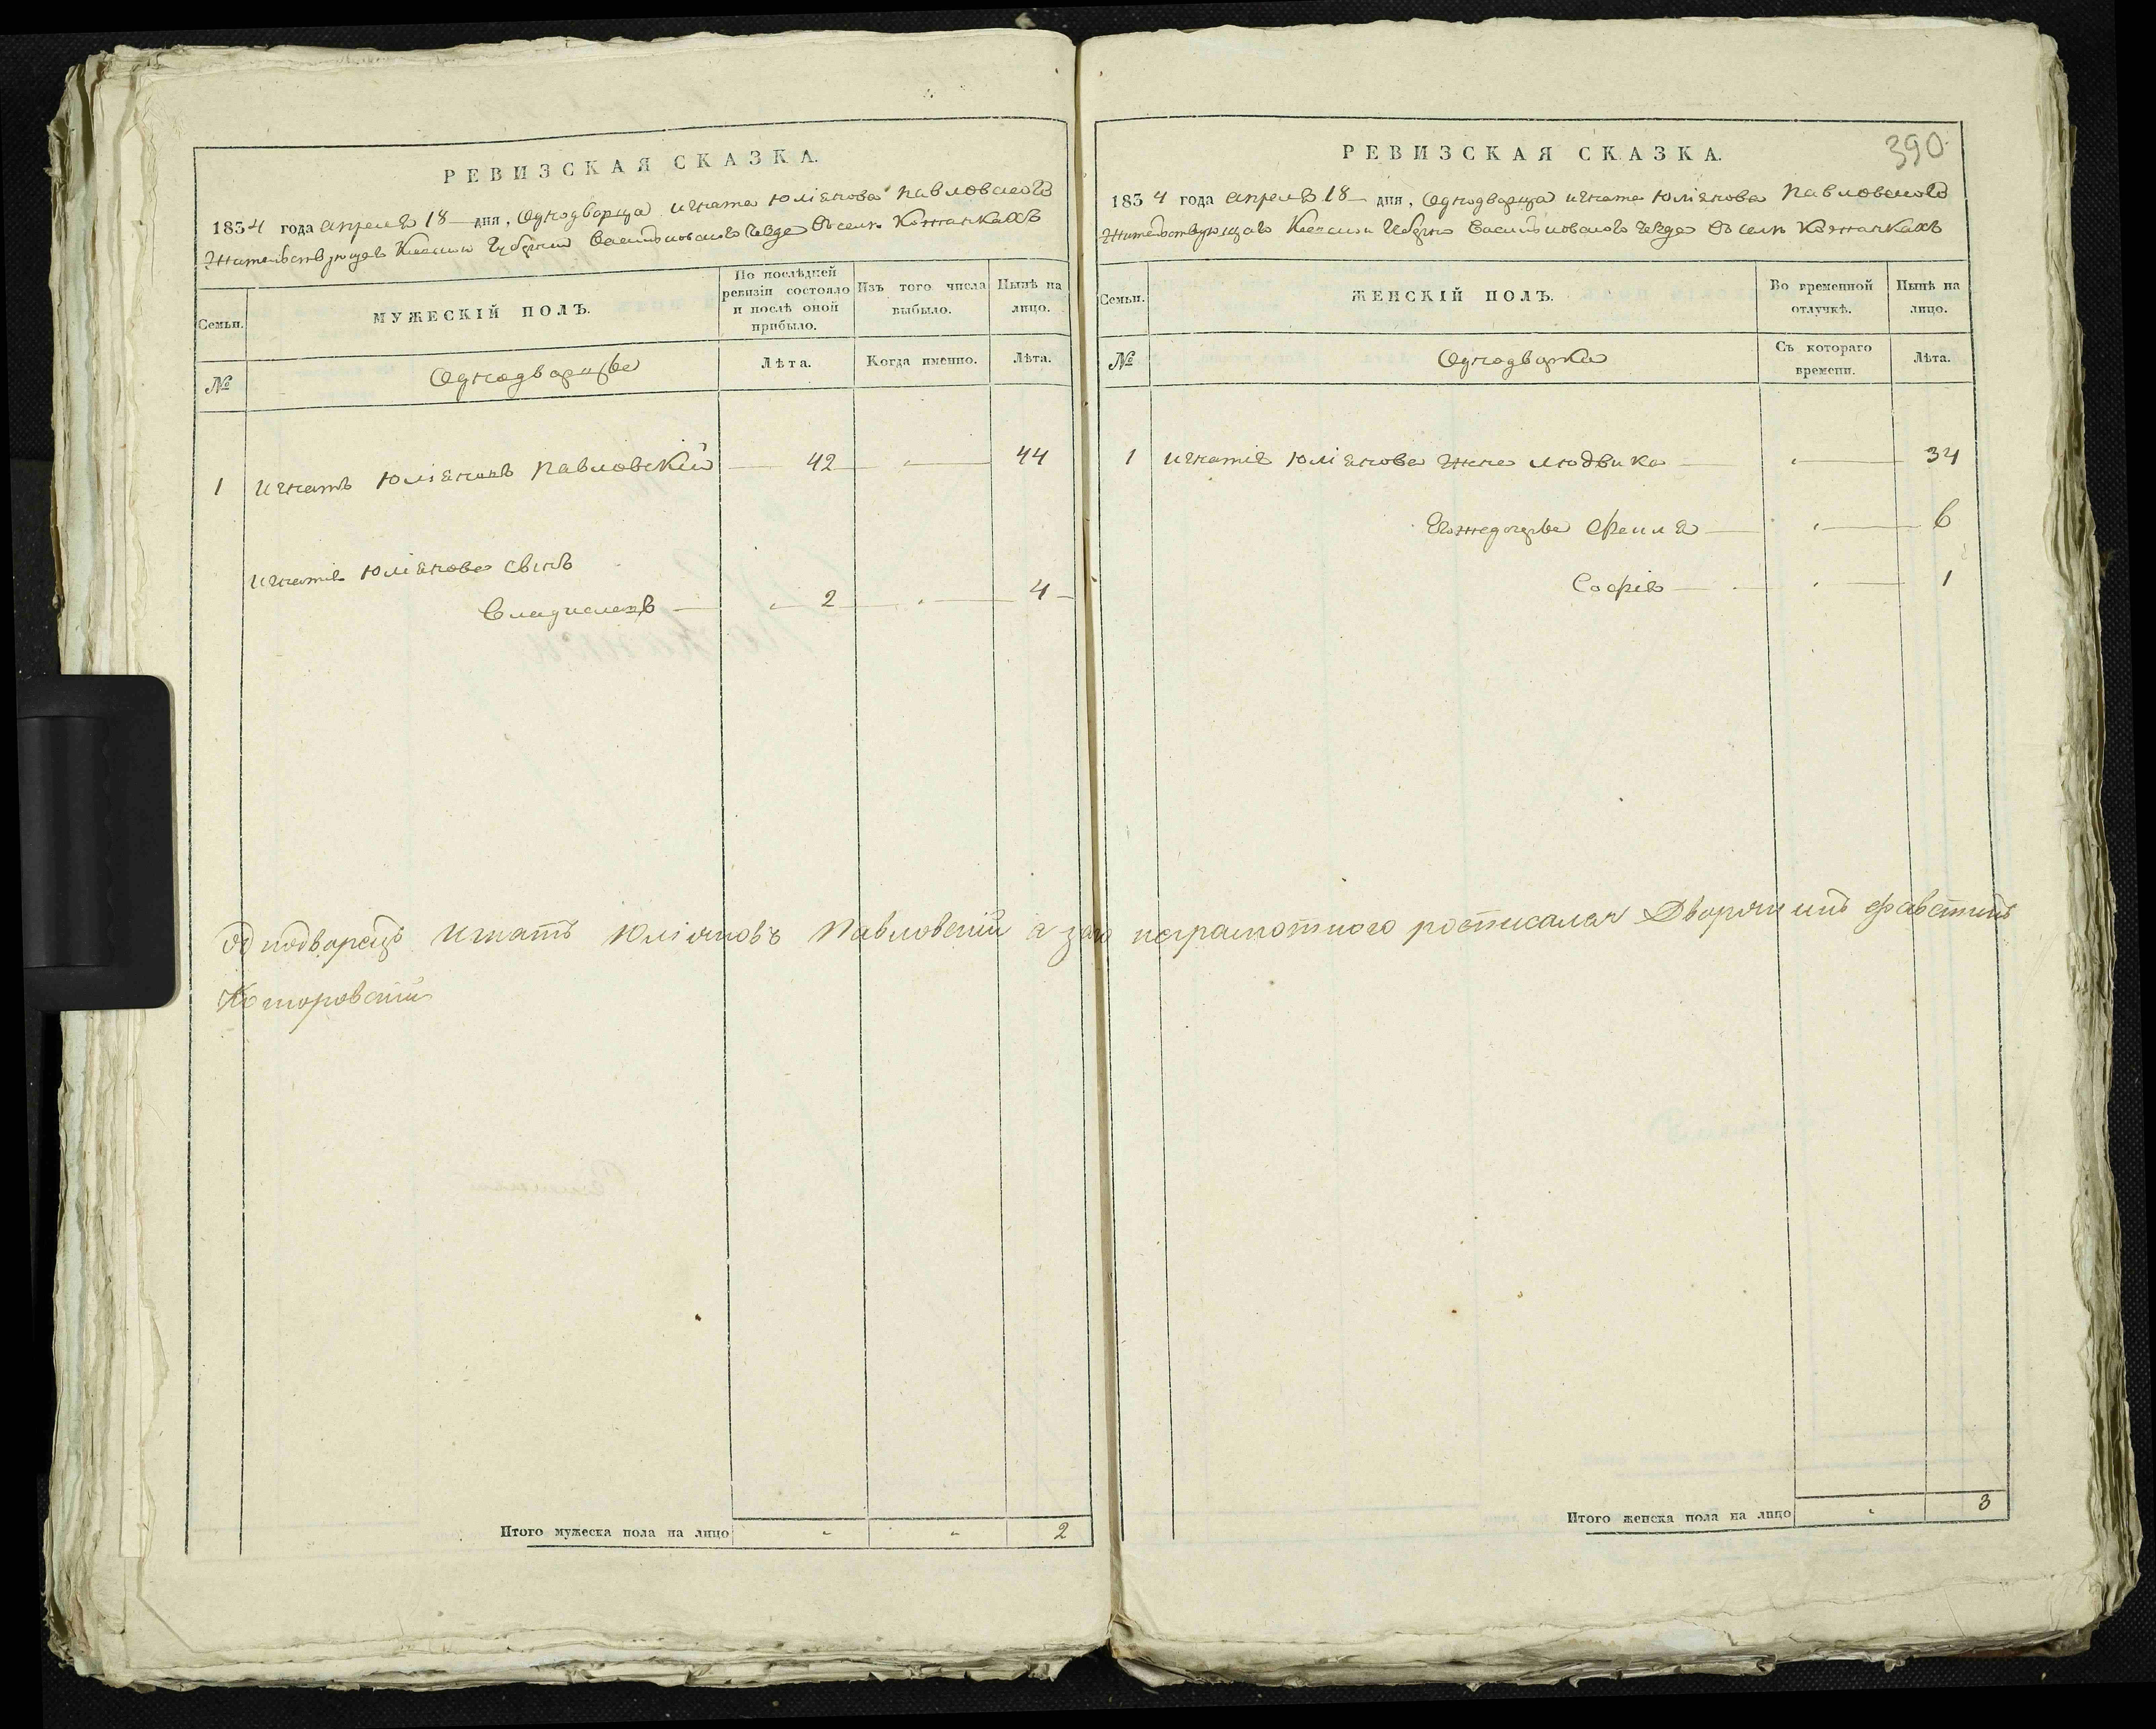 РЕВИЗСКАЯ СКАЗКА.
1834 года апреля 18 дня, Однодворца Игната Юліянова Павловского
Жительствующаго Киевской Губерніи Васильковского уезда в селе Кожанках
Семьи.
МУЖЕСКІЙ ПОЛЪ.
По послѣдней ревизіи состояло и послѣ оной прибыло.
Изъ того числа выбыло.
Нынѣ на лицо.
№
Однодворцы
Лѣта.
Когда именно.
Лѣта.
1 Игнатъ Юліяновъ Павловскій 42 44
Игнатія Юліянова сынъ
Владиславъ 2 4
однодворецъ Игнатъ Юліяновъ Павловскій а за его неграмотного росписался Дворянинъ Фавстинъ
Итого мужеска пола на лицо 2
РЕВИЗСКАЯ СКАЗКА.
390
1834 года апреля 18 дня, Однодворца Игната Юліянова Павловского
Жительствующаго Киевской Губерніи Васильковского уезда в селе Кожанкахъ
Семьи.
ЖЕНСКІЙ ПОЛЪ.
Во временной отлучкѣ.
Нынѣ на лицо.
№
Однодворки
Съ котораго времени.
Лѣта.
1 Игнатія Юліянова жена Людвика 34
Егожедочери 6
Софія 1
Итого женска пола на лицо 3